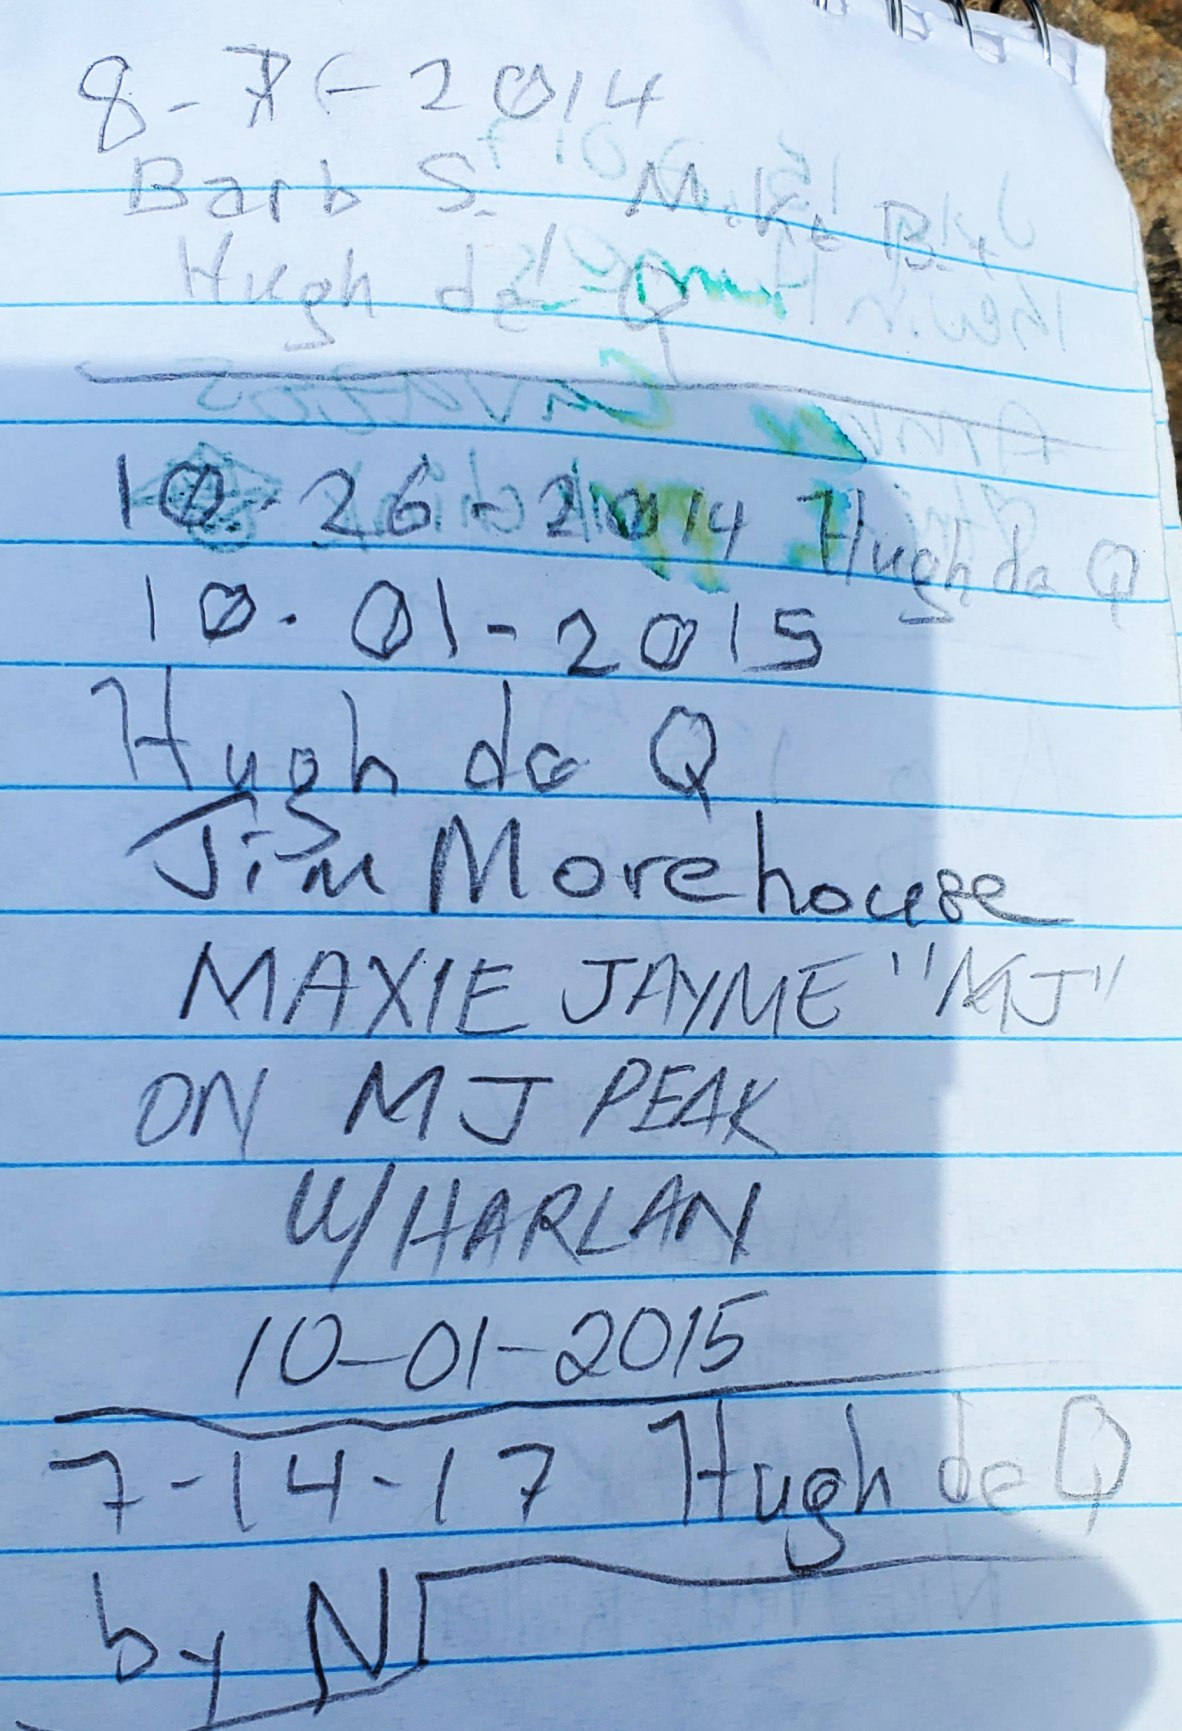 2014
Barb S. Mike B. +
Hugh da Q
10-26-2014 Hugh da Q
10-01-2015
Hugh da Q
Jim Morehouse
MAXIE JAYME "MJ"
ON MJ PEAK
W/HARLAN
10-01-2015
7-14-17 Hugh da Q
by N